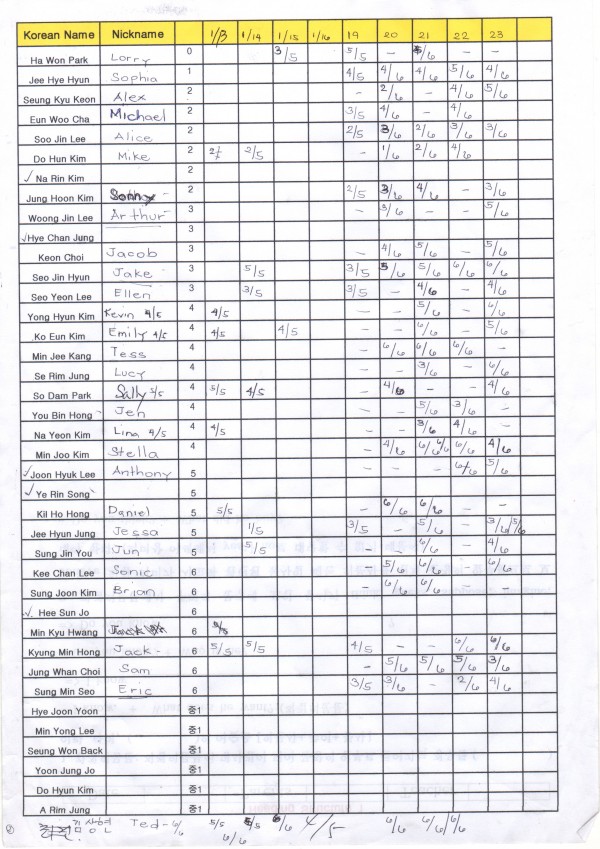 Korean Name Nickname 1/13 1/14 1/15 1/16 19 20 21 22 23
Ha Won Park Lorry 0 3/5 5/5 – 5/6 – –
Jee Hye Hyun Sophia 1 4/5 4/6 4/6 5/6 4/6
Seung Kyu Keon Alex 2 – 2/6 – 4/6 5/6
Eun Woo Cha Michael 2 3/5 4/6 – 4/6
Soo Jin Lee Alice 2 2/5 3/6 2/6 3/6 3/6
Do Hun Kim Mike 2 2/5 – 1/6 2/6 4/6
✓ Na Rin Kim 2
Jung Hoon Kim Sonny 2 2/5 3/6 4/6 – 3/6
Woong Jin Lee Arthur 3 – 3/6 – – 5/6
✓ Hye Chan Jung 3
Keon Choi Jacob 3 – 4/6 5/6 – 5/6
Seo Jin Hyun Jake 3 5/5 3/5 5/6 5/6 6/6 6/6
Seo Yeon Lee Ellen 3 3/5 3/5 – 4/6 – 4/6
Yong Hyun Kim Kevin 4/5 4 4/5 – – 5/6 – 6/6
Ko Eun Kim Emily 4/5 4 4/5 4/5 – – 6/6 – 5/6
Min Jee Kang Tess 4 – 6/6 6/6 6/6 –
Se Rim Jung Lucy 4 – – 3/6 – 6/6
So Dam Park Sally 5/5 4 5/5 4/5 – 4/6 – – 4/6
You Bin Hong Jen 4 – – 5/6 3/6 –
Na Yeon Kim Lina 4/5 4 4/5 – – 3/6 4/6 –
Min Joo Kim Stella 4 – 4/6 6/6 6/6 6/6 4/6
✓ Joon Hyuk Lee Anthony 5 – – – 6/6 5/6
✓ Ye Rin Song 5
Kil Ho Hong Daniel 5 5/5 – 6/6 6/6 – –
Jee Hyun Jung Jessa 5 1/5 3/5 – 5/6 – 3/6 5/6
Sung Jin You Jun 5 5/5 – – 6/6 – 4/6
Kee Chan Lee Sonic 6 – 5/6 6/6 – 6/6
Sung Joon Kim Brian 6 – 6/6 6/6 – –
✓ Hee Sun Jo 6
Min Kyu Hwang 6
Kyung Min Hong Jack 6 5/5 5/5 4/5 – – 6/6 6/6
Jung Whan Choi Sam 6 – 5/6 5/6 5/6 3/6
Sung Min Seo Eric 6 3/5 3/6 – 2/6 4/6
Hye Joon Yoon 중1
Min Yong Lee 중1
Seung Won Back 중1
Yoon Jung Jo 중1
Do Hyun Kim 중1
A Rim Jung 중1
Ted – 6/6 5/5 5/5 6/6 4/5 6/6 6/6 6/6
6/6